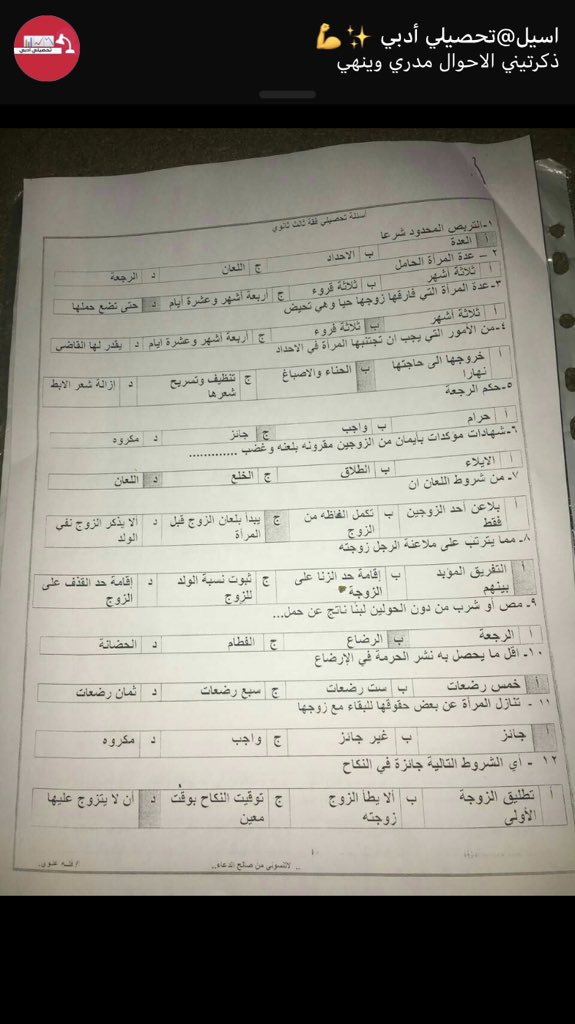 اسيل@تحصيلي أدبي ✨💪
ذكرتيني الاحوال مدري وينهي
تحصيلي أدبي
أسئلة تحصيلي فقة ثالث ثانوي
١-التربص المحدود شرعا
أ العدة ب الاحداد ج اللعان د الرجعة
٢- عدة المرأة الحامل
أ ثلاثة أشهر ب ثلاثة قروء ج أربعة أشهر وعشرة أيام د حتى تضع حملها
٣-عدة المرأة التي فارقها زوجها حيا وهي تحيض
أ ثلاثة أشهر ب ثلاثة قروء ج أربعة أشهر وعشرة أيام د يقدر لها القاضي
٤-من الأمور التي يجب ان تجتنبها المرأة في الاحداد
أ خروجها الى حاجتها نهارا ب الحناء والاصباغ ج تنظيف وتسريح شعرها د إزالة شعر الابط
٥-حكم الرجعة
أ حرام ب واجب ج جائز د مكروه
٦-شهادات مؤكدات بأيمان من الزوجين مقرونه بلعنه وغضب .............
أ الايلاء ب الطلاق ج الخلع د اللعان
٧- من شروط اللعان ان
أ يلاعن أحد الزوجين فقط ب تكمل الفاظه من الزوج ج يبدا بلعان الزوج قبل المرأة د الا يذكر الزوج نفي الولد
٨- مما يترتب على ملاعنة الرجل زوجته
أ التفريق المؤبد بينهم ب إقامة حد الزنا على الزوجة ج ثبوت نسبة الولد للزوج د إقامة حد القذف على الزوج
٩- مص أو شرب من دون الحولين لبنا ناتج عن حمل...
أ الرجعة ب الرضاع ج الفطام د الحضانة
١٠- اقل ما يحصل به نشر الحرمة في الإرضاع
أ خمس رضعات ب ست رضعات ج سبع رضعات د ثمان رضعات
١١ - تنازل المرأة عن بعض حقوقها للبقاء مع زوجها
أ جائز ب غير جائز ج واجب د مكروه
١٢ - أي الشروط التالية جائزة في النكاح
أ تطليق الزوجة الأولى ب ألا يطأ الزوج زوجته ج توقيت النكاح بوقت معين د أن لا يتزوج عليها
.. لاتنسوني من صالح الدعاء..